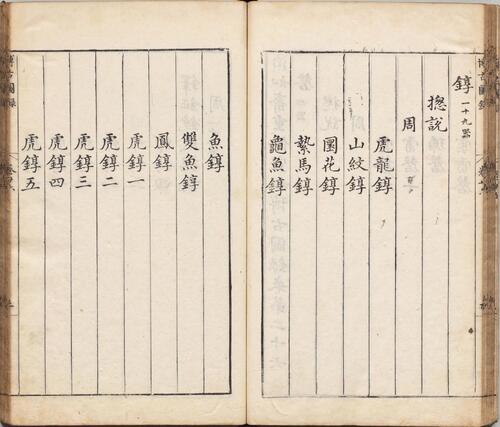 錞一十九器
揔說
周
虎龍錞
山紋錞
圜花錞
縶馬錞
龜魚錞
魚錞
雙魚錞
鳳錞
虎錞一
虎錞二
虎錞三
虎錞四
虎錞五
博古圖錄